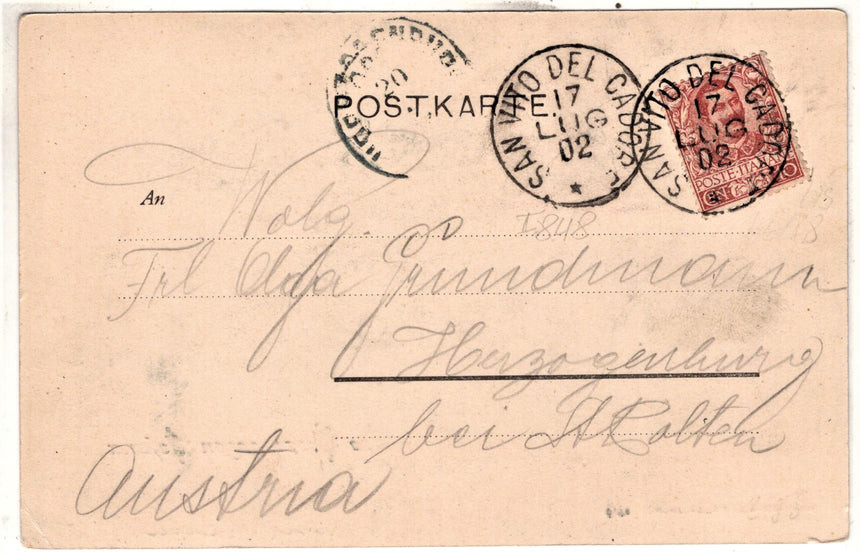 HERZOGENBURG
20
POSTKARTE.
SAN VITO DEL CADORE
17
LUG
02
SAN VITO DEL CADORE
17
LUG
02
POSTE·ITALIANE
An
Wolg.
I848
Frl Olga Grundmann
Herzogenburg
bei St Pölten
Austria